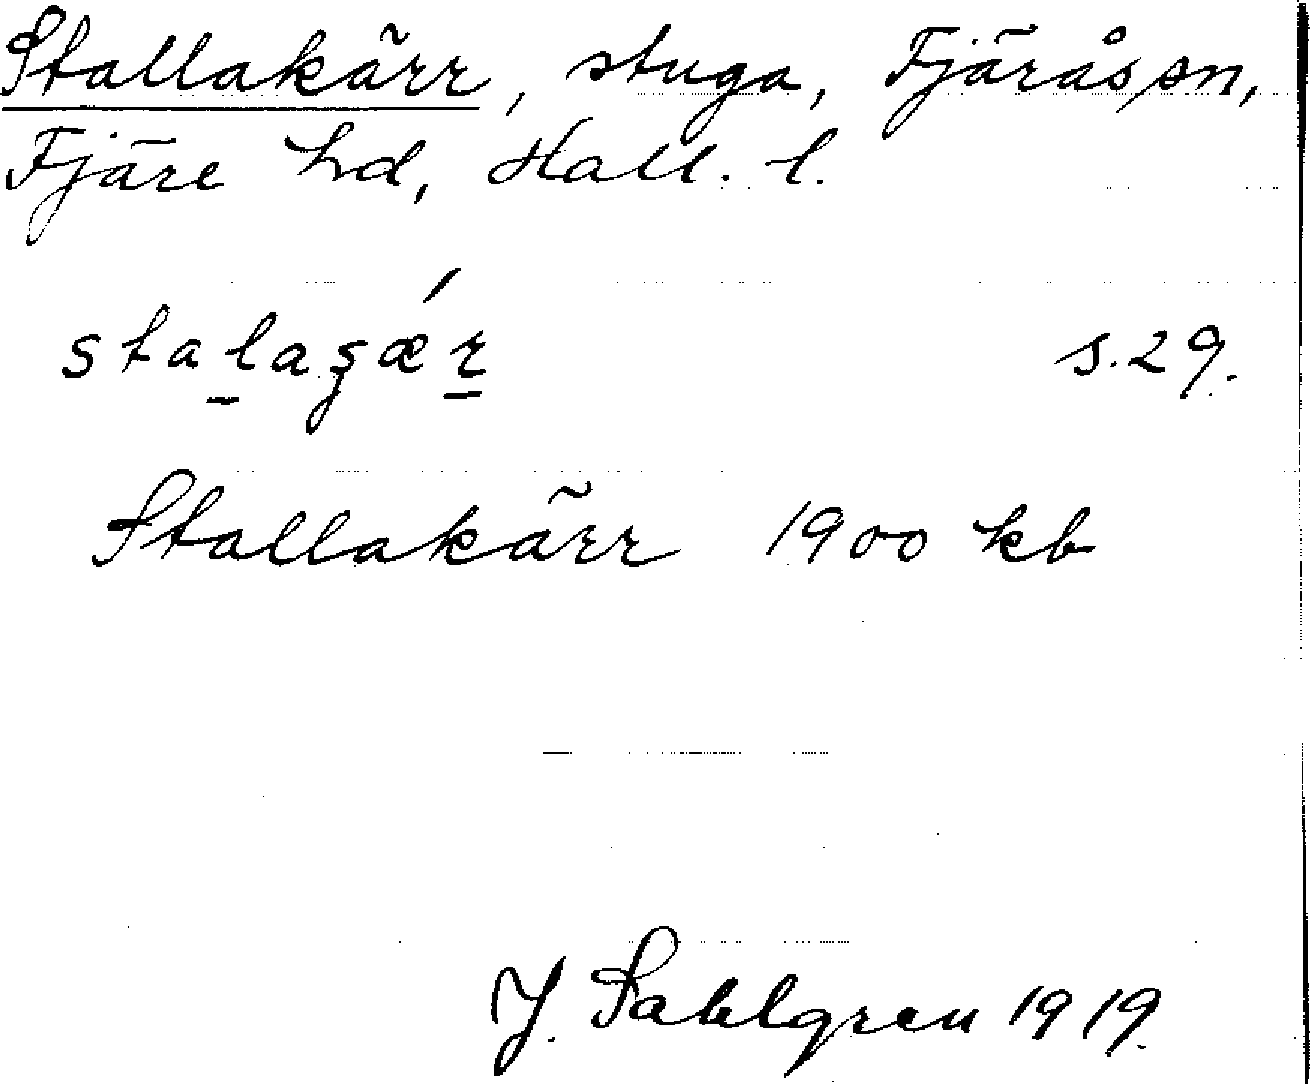 Stallakärr, stuga, Fjärås sn,
Fjäre hd, Hall. l.
s. 29.
Stallakärr 1900 kb
J. Sahlgren 1919.